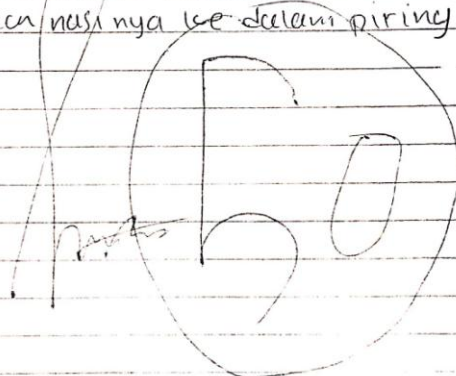 an nasinya ke dalam piring
50